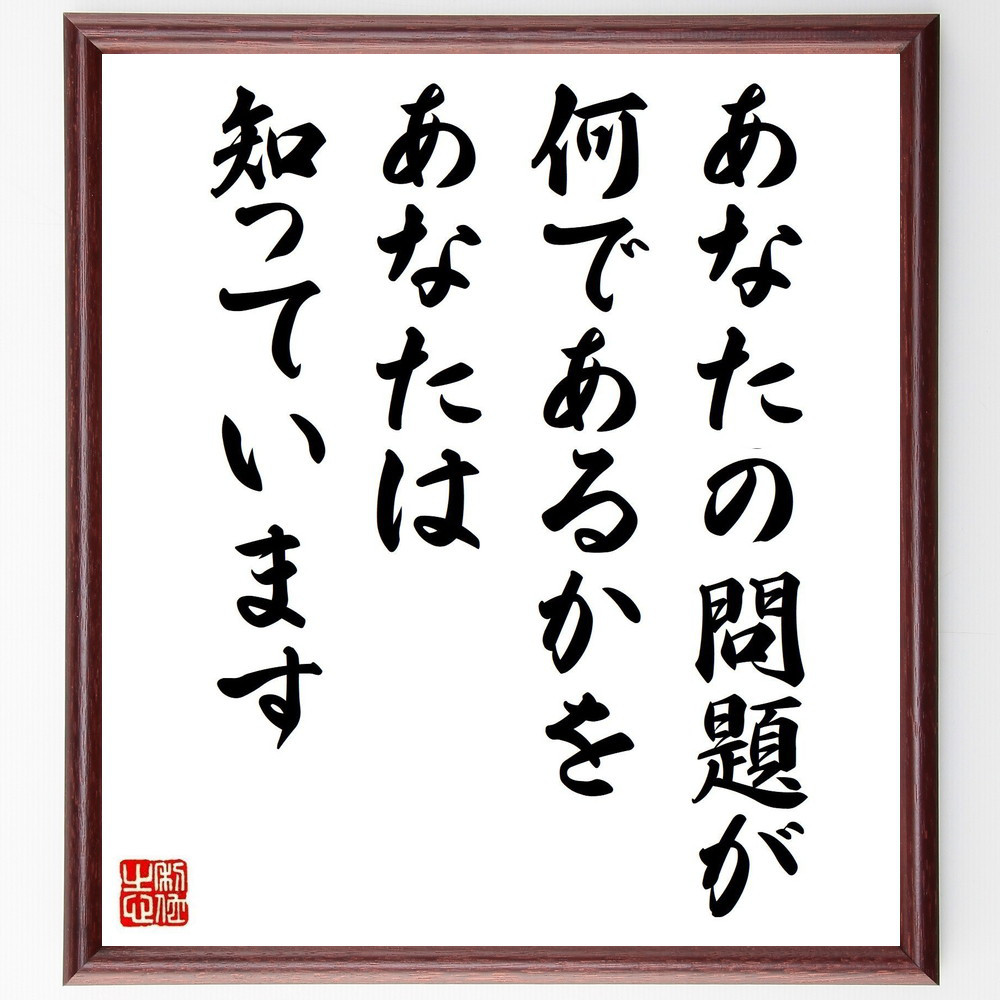 あなたの問題が
何であるかを
あなたは
知っています